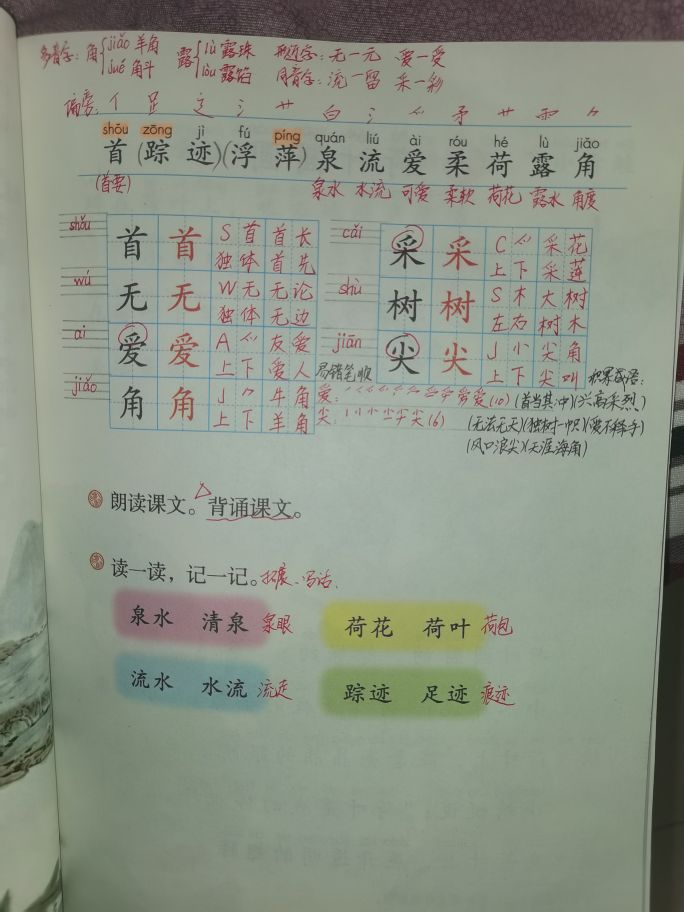 多音字：角 jiǎo 羊角 露 lù 露珠 形近字：无一元 爱一受
jué 角斗 lòu 露馅 同音字：流一留 采一彩
偏旁：亻 𧾷 辶 氵 艹 白 氵 爫 矛 艹 ⻗ ⺈
shǒu zōng jì fú píng quán liú ài róu hé lù jiǎo
首(踪 迹)(浮 萍)泉 流 爱 柔 荷 露 角
(首要) 泉水 水流 可爱 柔软 荷花 露水 角度
shǒu 首 首 S 首 首长
独体 首先
wú 无 无 W 无 无论
独体 无边
ai 爱 爱 A 爫 友爱
上下 爱人
jiǎo 角 角 J ⺈ 牛角
上下 羊角
cǎi 采 采 C 爫 采花
上下 采莲
shù 树 树 S 木 大树
左右 树木
jiān 尖 尖 J 小 尖角
上下 尖叫
易错笔顺 积累成语：
爱： 爱(10) (首当其冲)(兴高采烈)
尖： 尖(6) (无法无天)(独树一帜)(爱不释手)
(风口浪尖)(天涯海角)
朗读课文。背诵课文。
读一读，记一记。拓展、写话、
泉水 清泉 泉眼 荷花 荷叶 荷包
流水 水流 流走 踪迹 足迹 痕迹